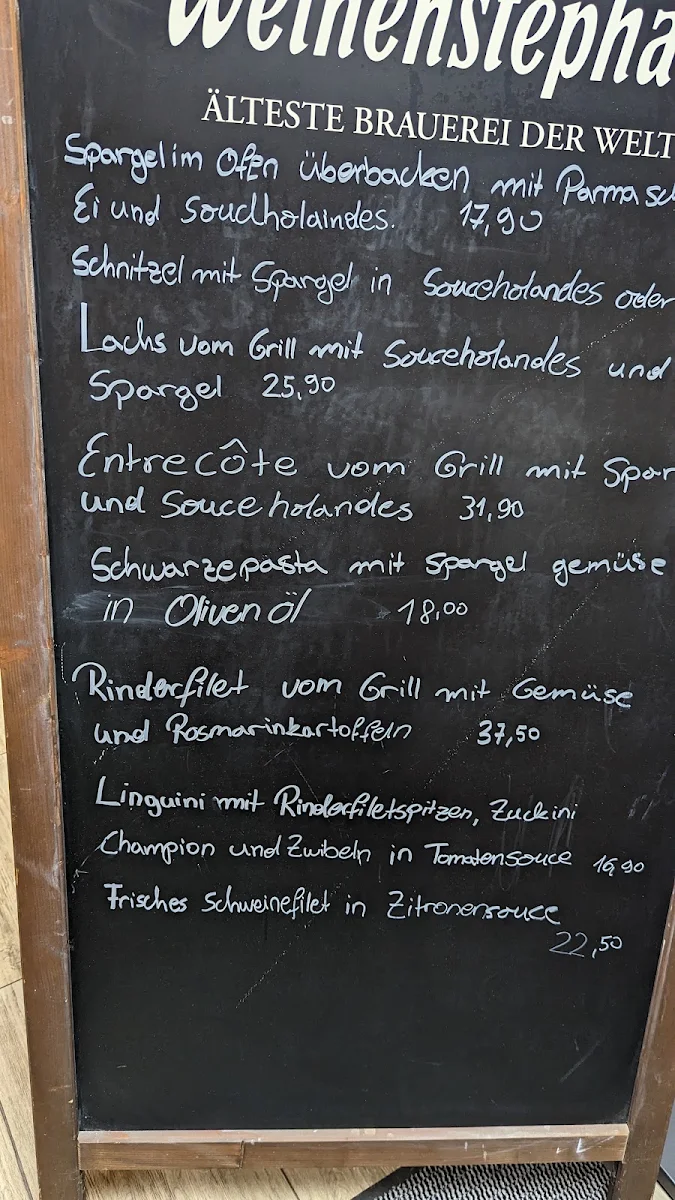 Weihenstepha
ÄLTESTE BRAUEREI DER WELT
Spargel im Ofen überbacken mit Parma sc
Ei und Soucholaindes. 17,90
Schnitzel mit Spargel in Souceholandes oder
Lachs vom Grill mit Souceholandes und
Spargel 25,90
Entrecôte vom Grill mit Spar
und Souce holandes 31,90
Schwarzepasta mit Spargel gemüse
in Oliven öl 18,00
Rinderfilet vom Grill mit Gemüse
und Rosmarinkartoffeln 37,50
Linguini mit Rinderfiletspitzen, Zuckini
Champion und Zwibeln in Tomatensouce 16,90
Frisches Schweinefilet in Zitronensouce
22,50